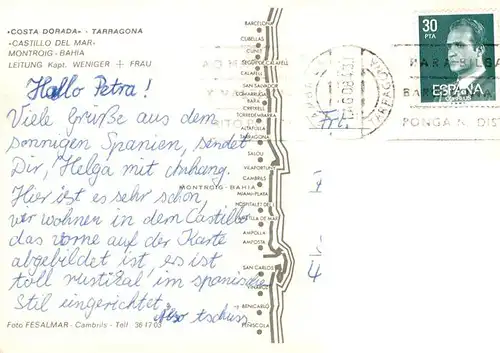 «COSTA DORADA» - TARRAGONA
«CASTILLO DEL MAR»
MONTROIG - BAHIA
LEITUNG Kapt. WENIGER + FRAU
Hallo Petra!
Viele Grüße aus dem
sonnigen Spanien, sendet
Dir, Helga mit Anhang.
Hier ist es sehr schön,
wir wohnen in dem Castillo
das vorne auf der Karte
abgebildet ist, es ist
toll rustikal im spanischen
Stil eingerichtet.
Also tschuss
Foto FESALMAR - Cambrils - Telf 36 17 03
BARCELONA
CUBELLAS
CUNIT
SEGUR DE CALAFELL
CALAFELL
SAN SALVADOR
COMARRUGA
BARA
CREIXELL
TORREDEMBARRA
ALTAFULLA
TARRAGONA
SALOU
VILAFORTUNY
CAMBRILS
MONTROIG - BAHIA
MIAMI-PLAYA
HOSPITALET DEL
AMETLLA DE MAR
AMPOLLA
AMPOSTA
SAN CARLOS
VINAROZ
BENICARLO
PEÑISCOLA
30
PTA
ESPAÑA
CORREOS
PARA
BAR
PONGA N. DIS
Frl.
4